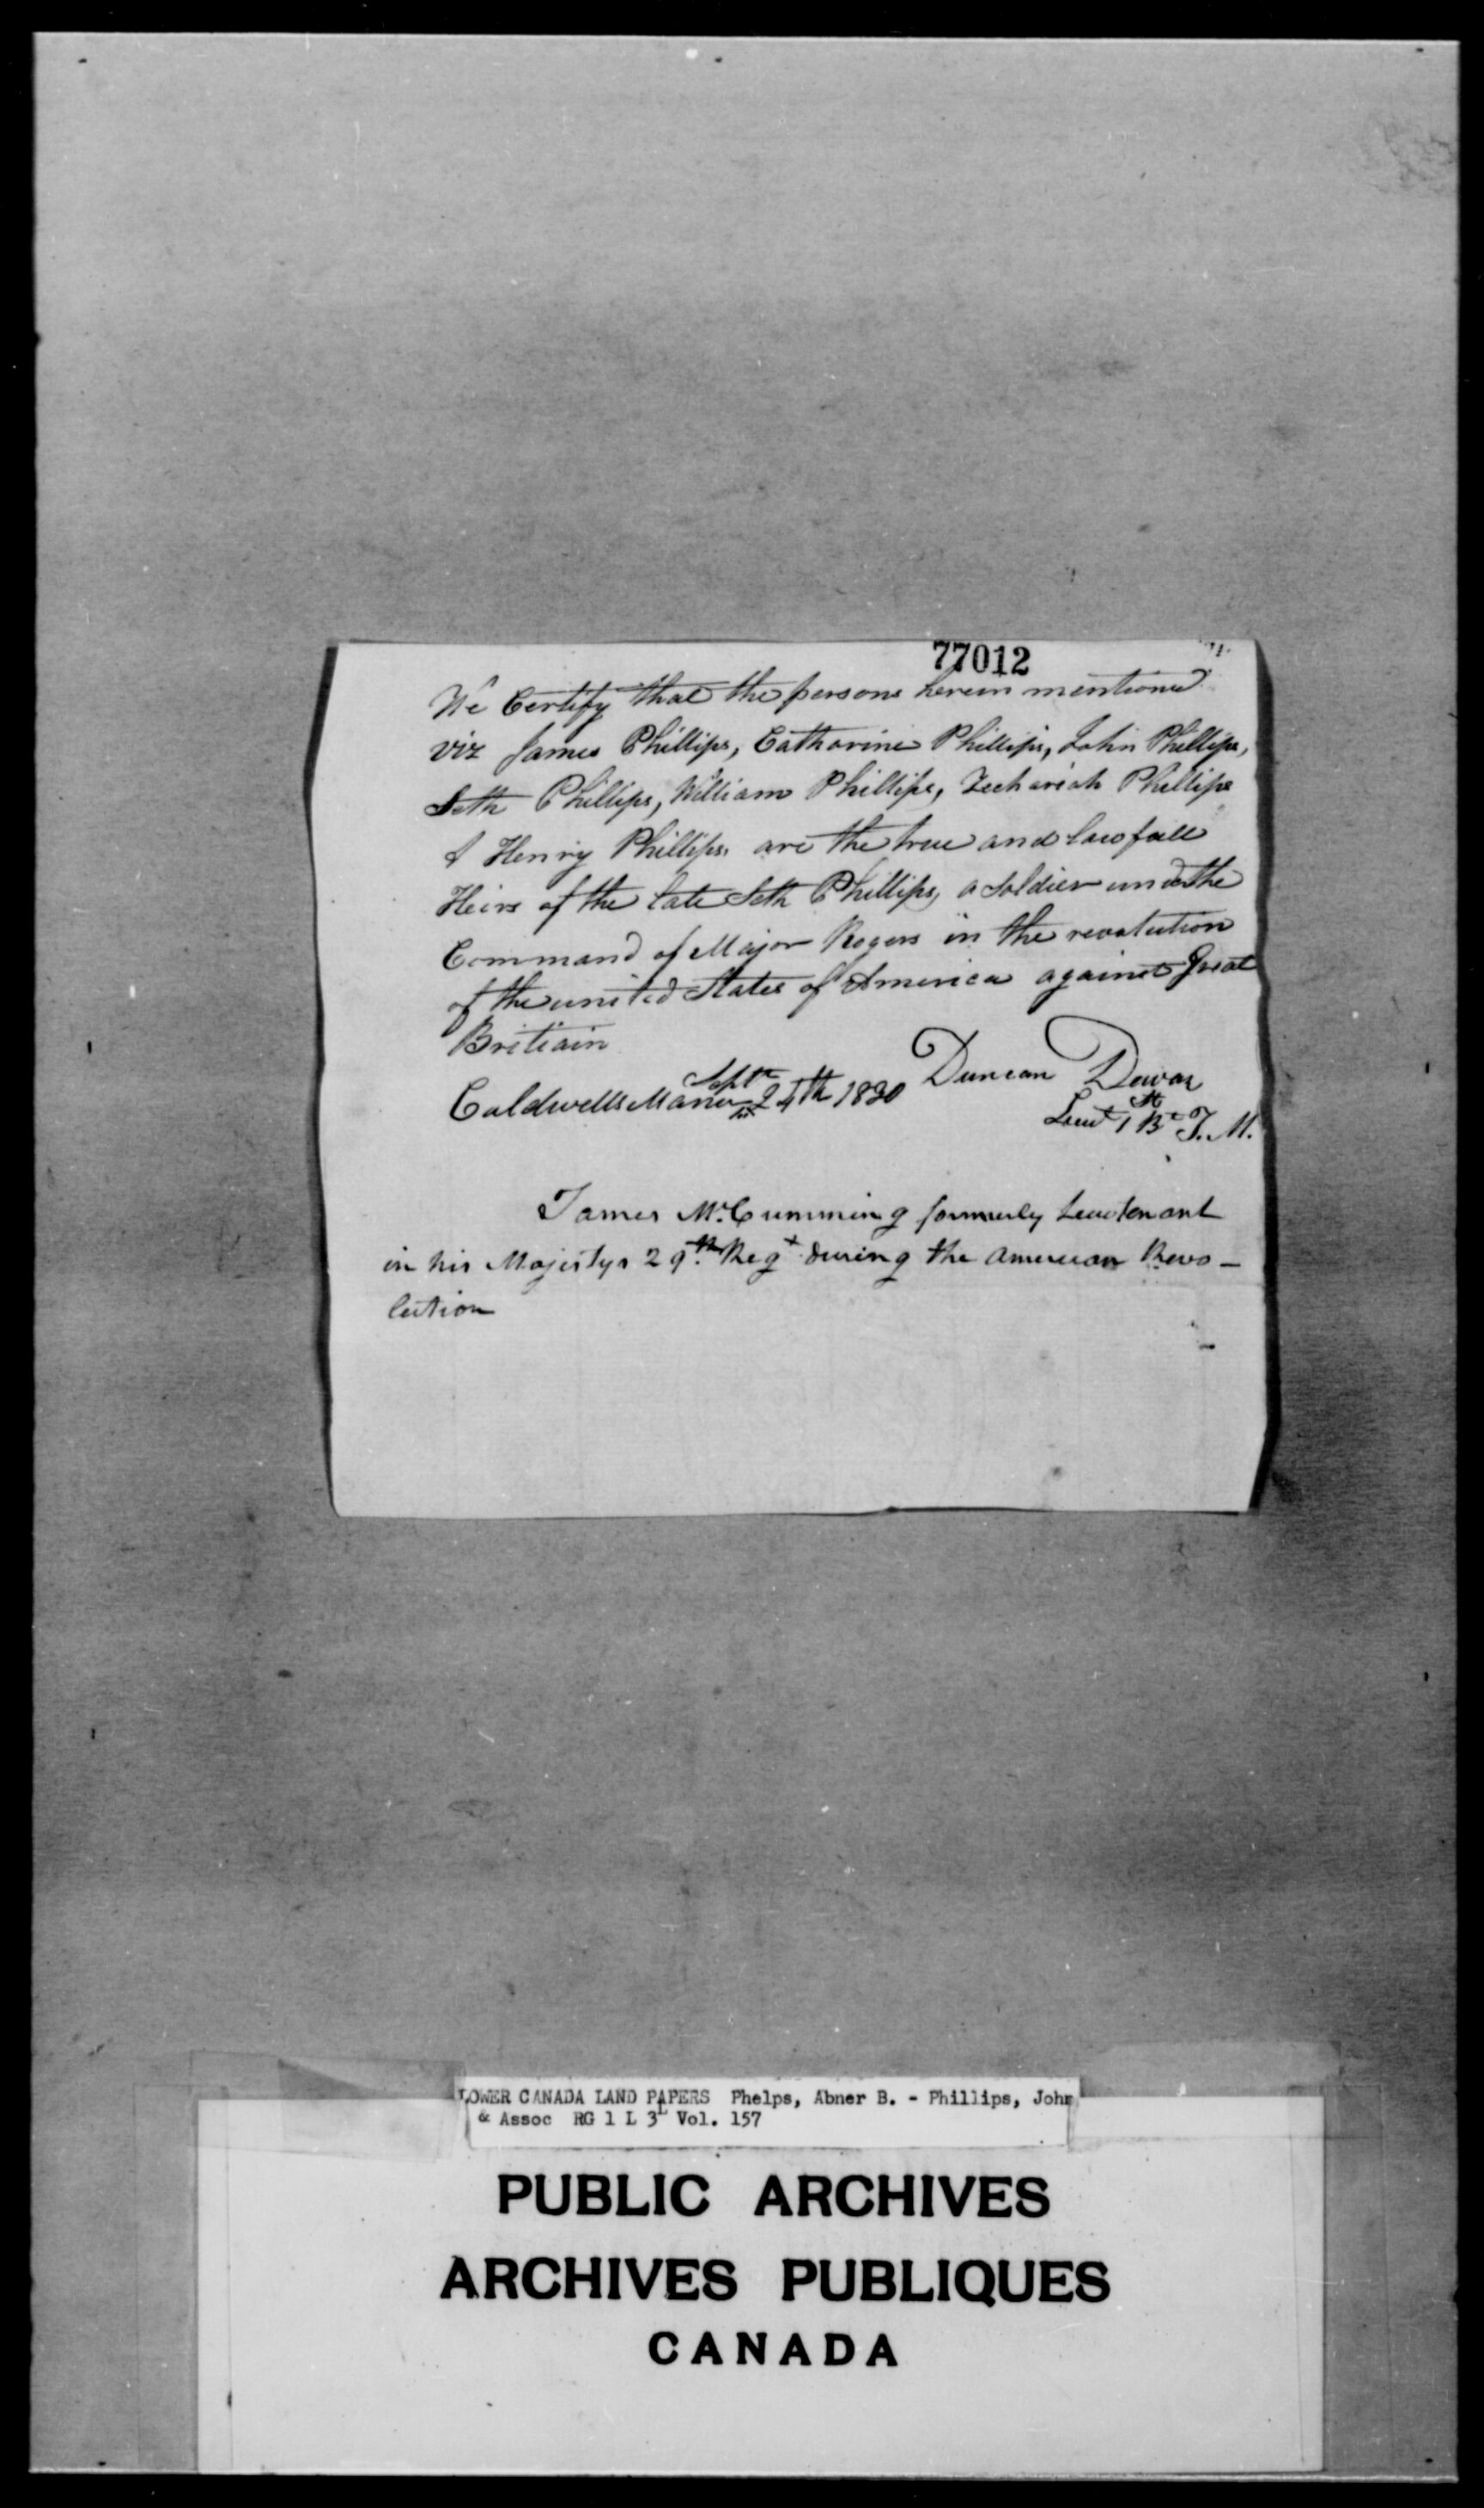 77012
We Certify that the persons herein mentioned
viz James Phillips, Catharine Phillips, John Phillips,
Seth Phillips, William Phillips, Zechariah Phillips
& Henry Phillips are the true and lawfull
Heirs of the late Seth Phillips, a Soldier under the
Command of Major Rogers in the revolution
of the united States of America against Great
Britiain
Caldwells Manor Septr 24th 1830
Duncan Dewar
Lieut 1st Bt J. M.
James McCumming formerly Leutenant
in his Majestys 29th Regt during the American Revo-
lution
LOWER CANADA LAND PAPERS Phelps, Abner B. - Phillips, John
& Assoc RG 1 L 3L Vol. 157
PUBLIC ARCHIVES
ARCHIVES PUBLIQUES
CANADA